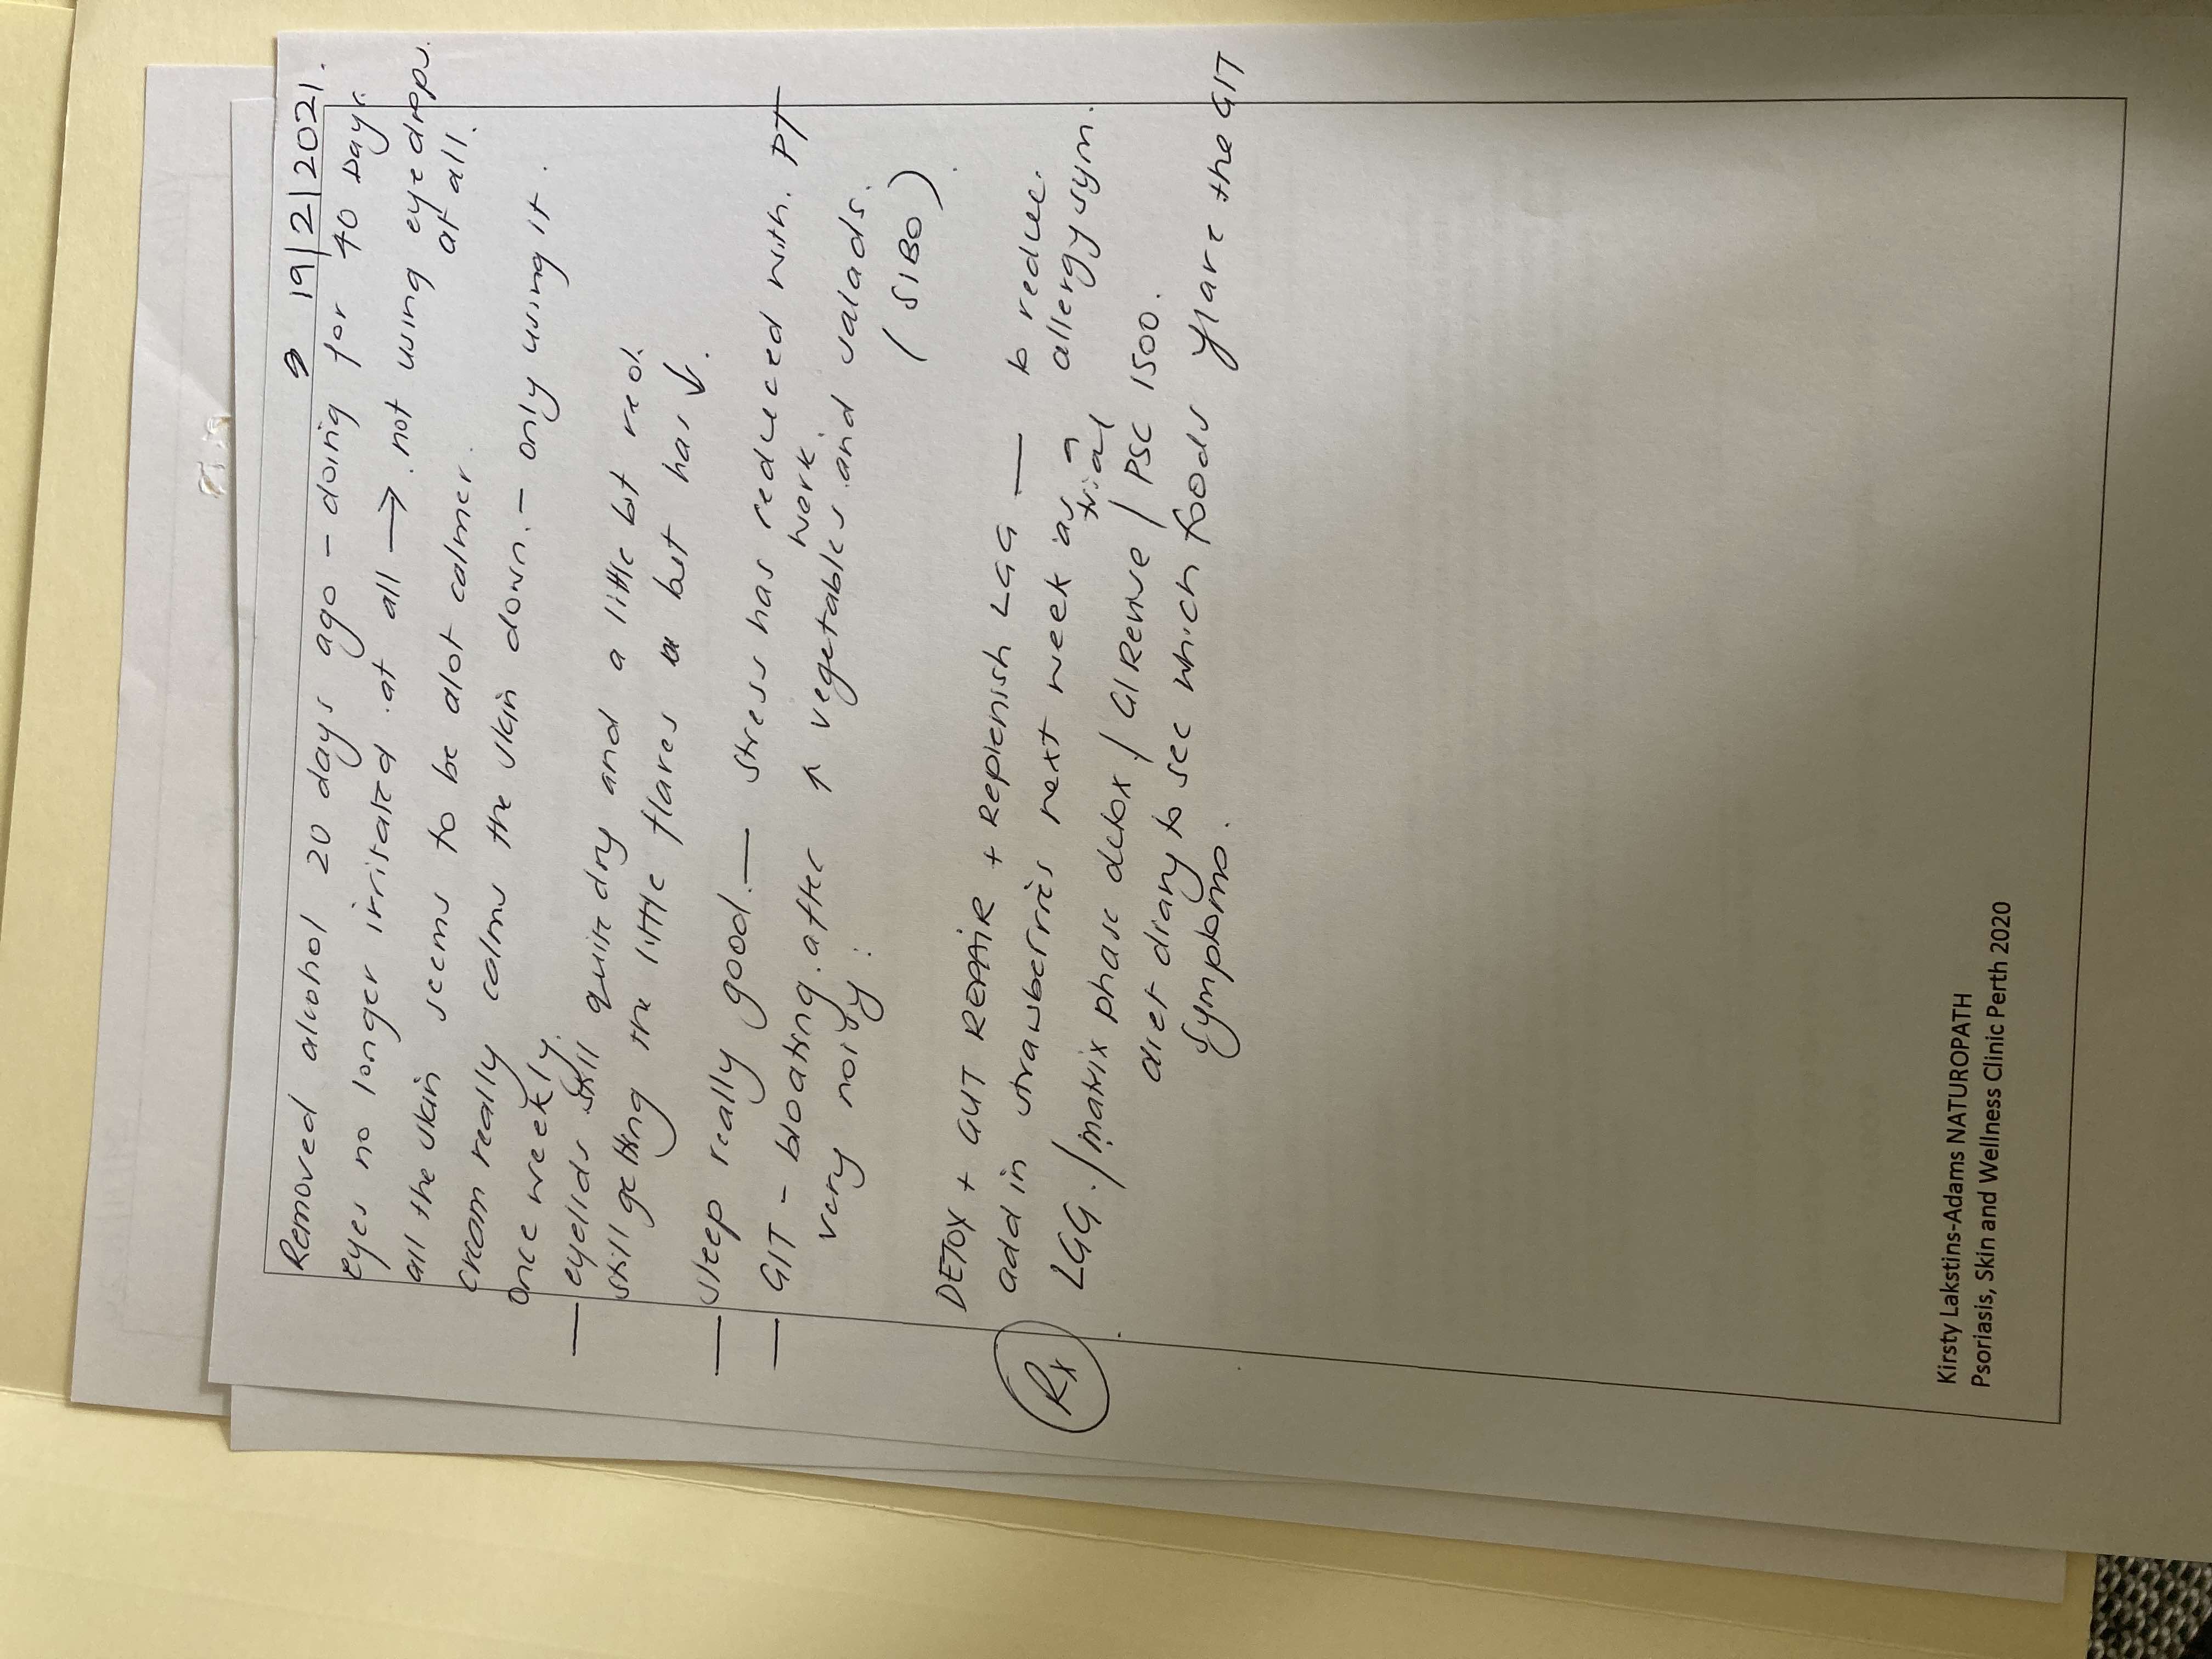 19/2/2021.
Removed alcohol 20 days ago - doing for 40 Days.
eyes no longer irritated at all → not using eye drops
at all.
all the skin seems to be alot calmer.
cream really calms the skin down. - only using it.
once weekly.
— eyelids still quite dry and a little bit red.
still getting the little flares but has ↓.
— sleep really good. — stress has reduced with. PT
work.
— GIT - bloating after ↑ vegetables and salads.
very noisy! (SIBO)
DETOX + GUT REPAIR + Replenish LGG — to reduce.
add in strawberries next week as a allergy sym.
trial
Rx LGG. / matrix phase detox / GI Revive / PSC 1500.
diet diary to see which foods flare the GIT
symptoms.
Kirsty Lakstins-Adams NATUROPATH
Psoriasis, Skin and Wellness Clinic Perth 2020